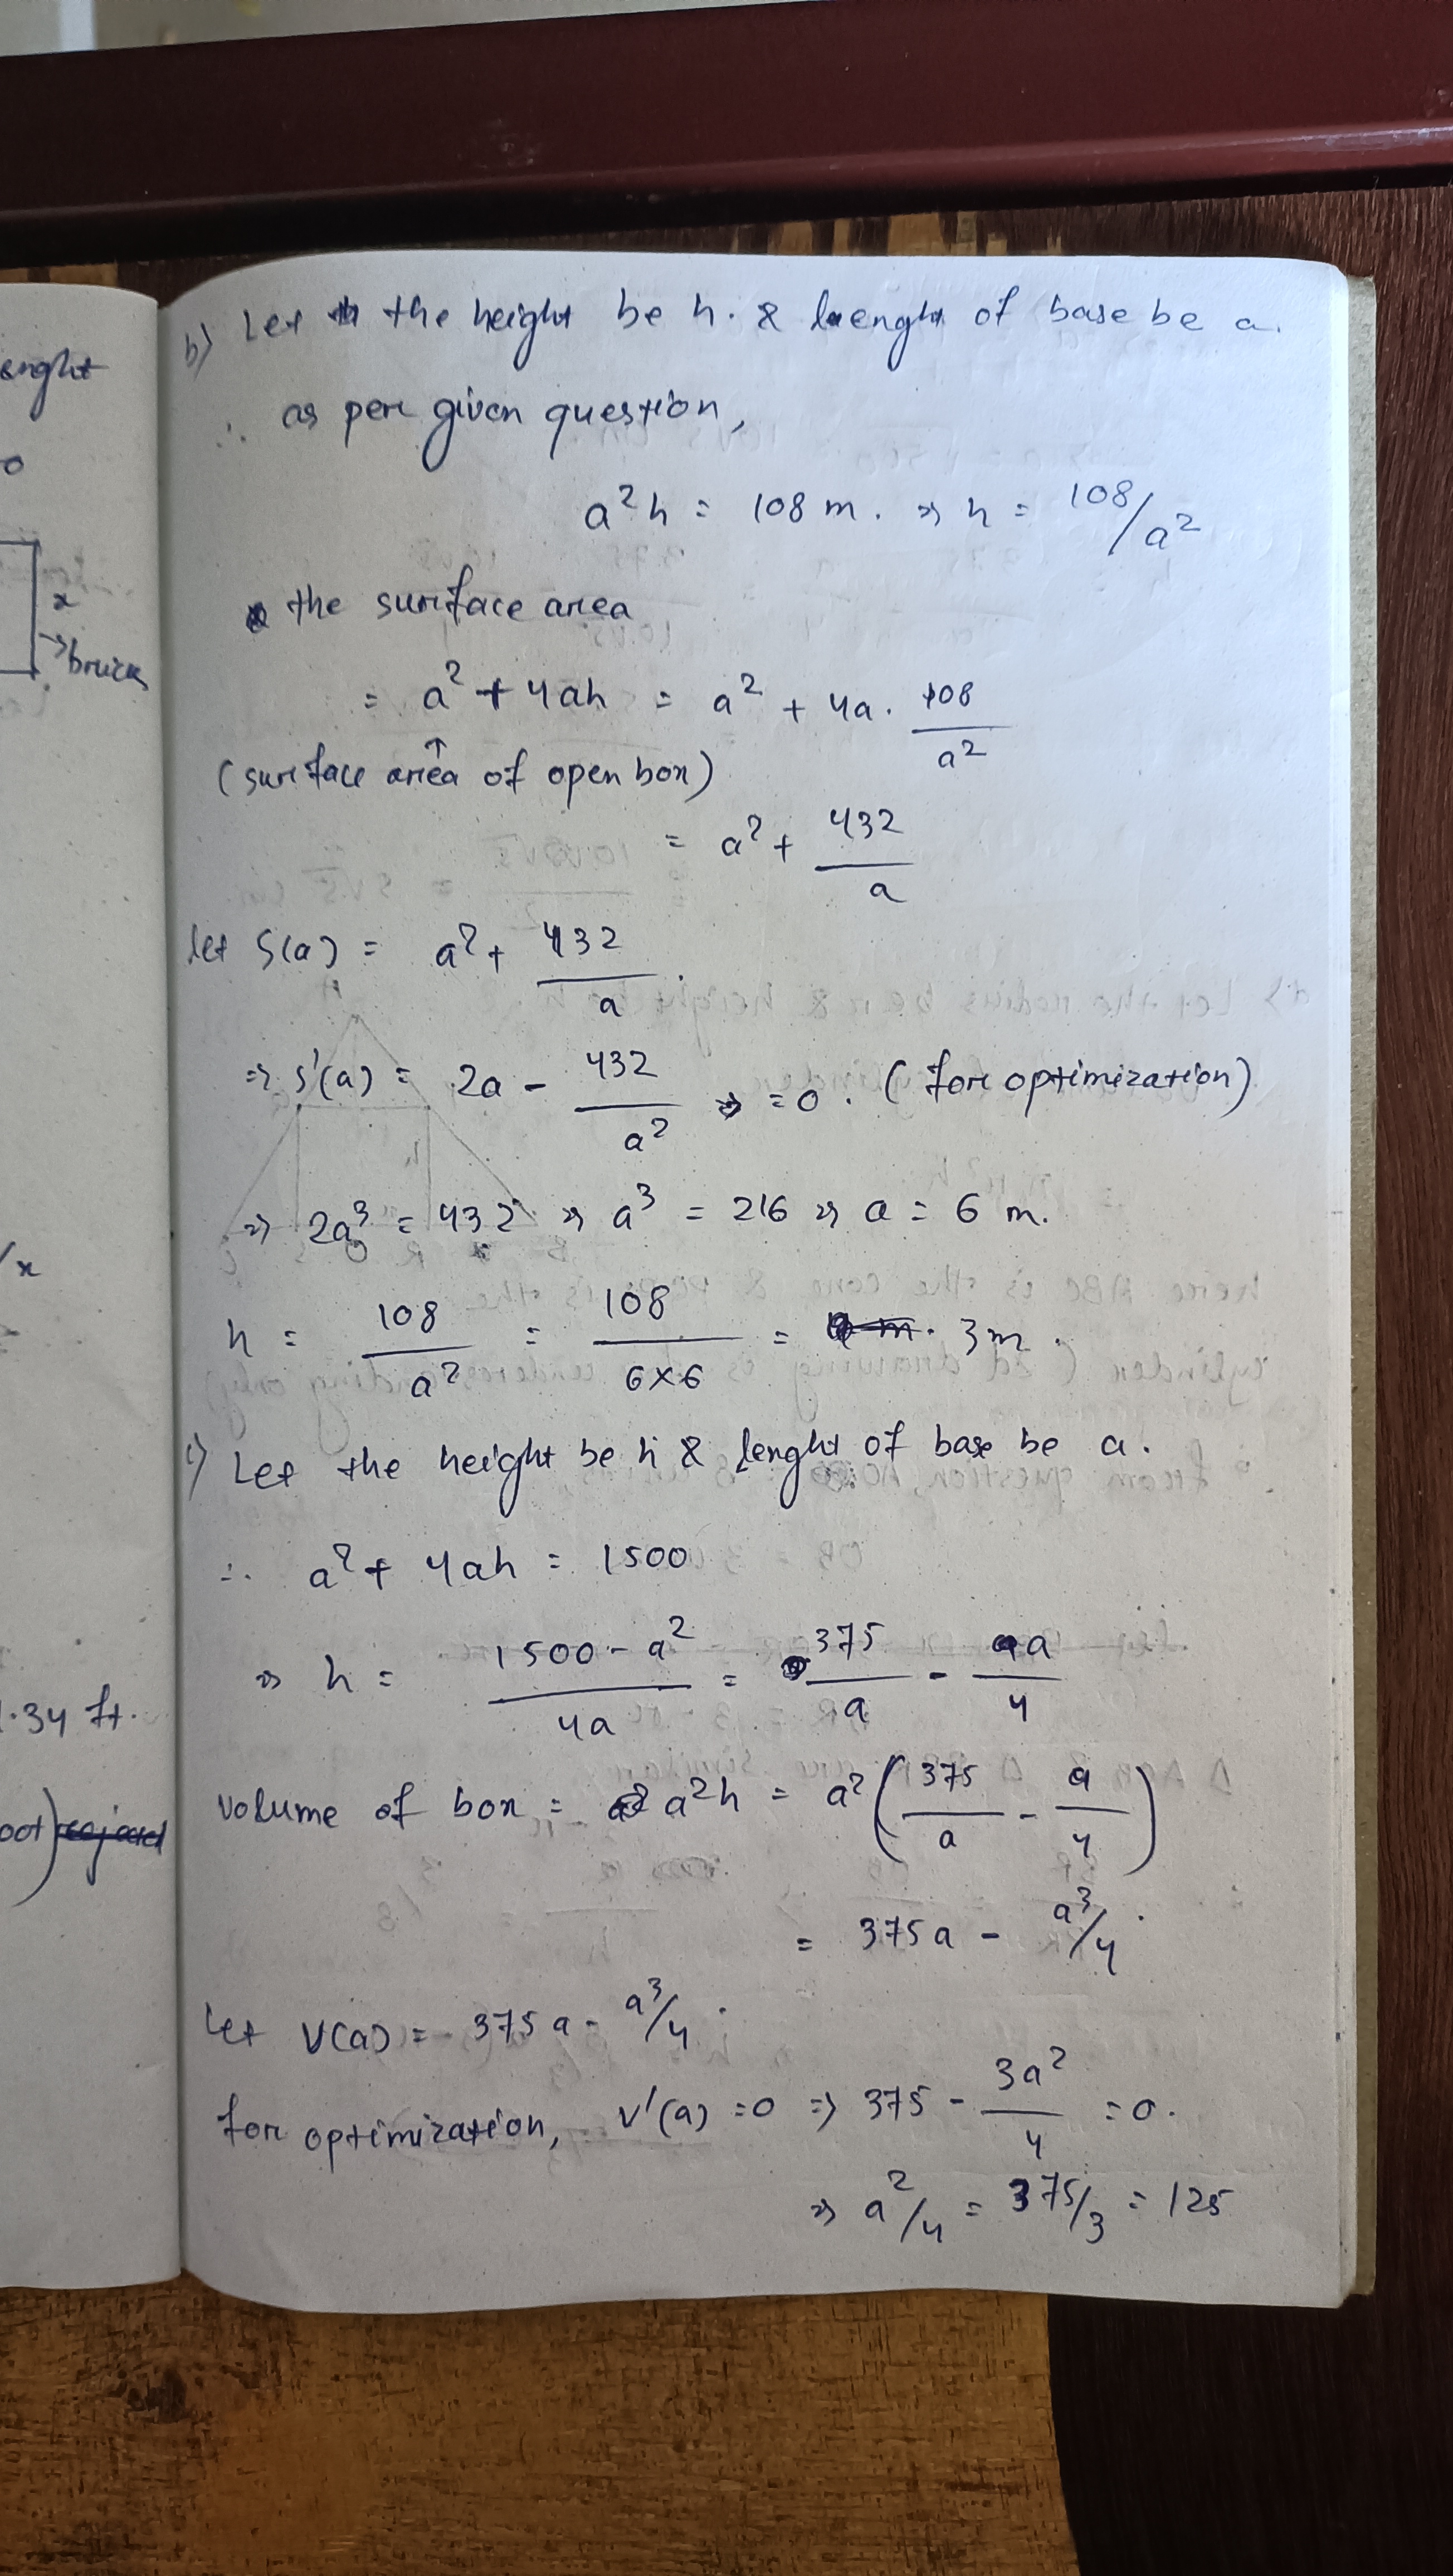 enght
o
x
→ brick
/x
1.34 ft.
oot)
b) Let the height be h. & lenght of base be a.
∴ as per given question,
a²h = 108 m. ⇒ h = 108/a²
the surface area
= a² + 4ah = a² + 4a. 108/a²
↑
(surface area of open box)
= a² + 432/a
let S(a) = a² + 432/a.
⇒ S'(a) = 2a - 432/a² = 0. (for optimization)
⇒ 2a³ = 432 ⇒ a³ = 216 ⇒ a = 6 m.
h = 108/a² = 108/6×6 = 3m.
c) Let the height be h & lenght of base be a.
∴ a² + 4ah = 1500
⇒ h = 1500 - a²/4a = 375/a - a/4
volume of box = a²h = a²(375/a - a/4)
= 375a - a³/4.
Let V(a) = 375a - a³/4.
for optimization, V'(a) = 0 ⇒ 375 - 3a²/4 = 0.
⇒ a²/4 = 375/3 = 125